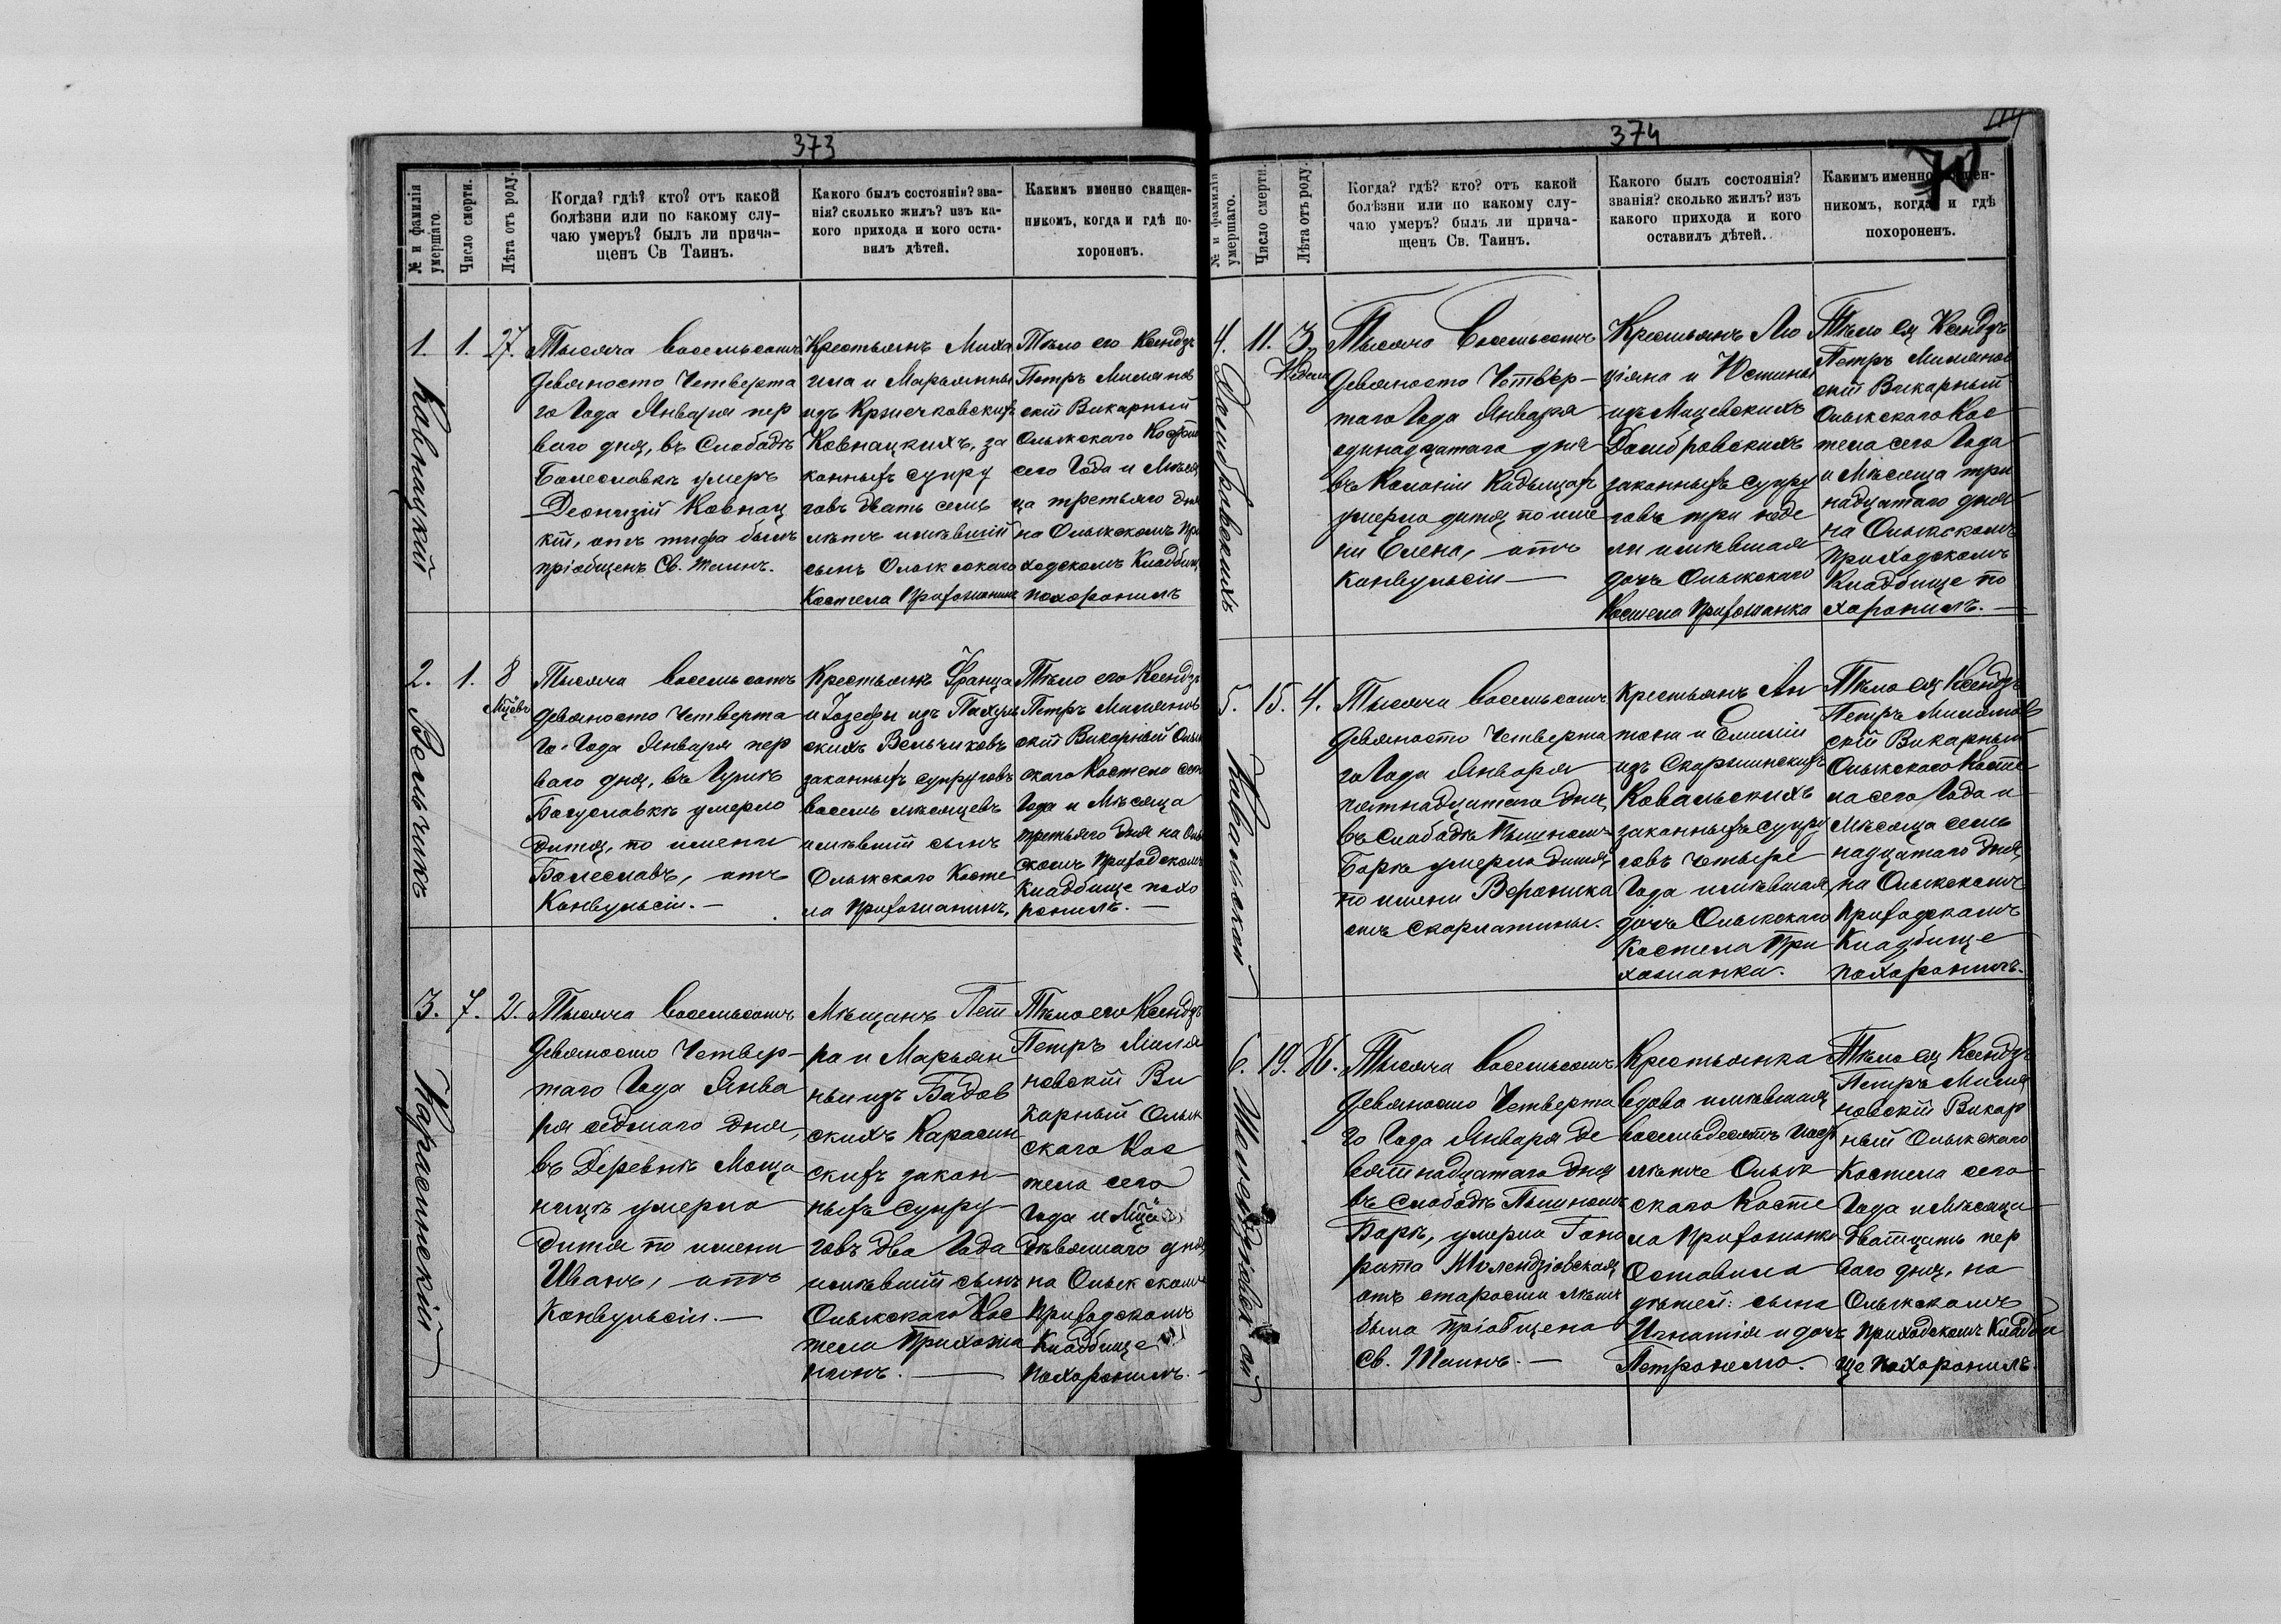 373
№ и фамилія
умершаго.
Число смерти.
Лѣта отъ роду.
Когда? гдѣ? кто? отъ какой
болѣзни или по какому слу-
чаю умеръ? былъ ли прича-
щенъ Св Таинъ.
Какого былъ состоянія? зва-
нія? сколько жилъ? изъ ка-
кого прихода и кого оста-
вилъ дѣтей.
Какимъ именно священ-
никомъ, когда и гдѣ по-
хороненъ.
1.
Ковнацкій
1.
27.
Тысяча восемьсотъ
девяносто четверта
го Года Января пер
ваго дня, въ Слободѣ
Болеславкѣ умеръ
Деонизій Ковнац
кій, отъ тифа былъ
пріобщенъ Св. Таинъ.
Крестьянъ Миха
ила и Марьянны
изъ Кржечковскихъ
Ковнацкихъ, за
конныхъ супру
говъ двать семь
лѣтъ имѣвшій
сынъ Олыкскаго
Костела Прихожанинъ
Тѣло его Ксендзъ
Петръ Милянов
скій Викарный
Олыкскаго Костел
сего Года и Мѣся
ца третьяго дня
на Олыкскомъ при
ходскомъ Кладбищ
похоронилъ
2.
Вельчикъ
1.
8
Мцевъ
Тысяча восемьсотъ
девяносто четверта
го Года Января пер
ваго дня, въ
Богуславкѣ умерло
дитя, по имени
Болеславъ, отъ
Конвульсіи. —
Крестьянъ Франца
и Іозефы изъ
скихъ Вельчиковъ
законныхъ супруговъ
восемь мѣсяцевъ
имѣвшій сынъ
Олыкскаго Косте
ла прихожанинъ.
Тѣло его Ксендзъ
Петръ Милянов
скій Викарный Олык
скаго Костела сего
Года и Мѣсяца
третьяго дня на Олык
скомъ приходскомъ
Кладбище похо
ронилъ. —
3.
Карасинскій
7.
2.
Тысяча восемьсотъ
девяносто четвер-
таго Года Янва
ря седмаго дня,
въ Деревнѣ Моща
ницѣ умерло
дитя по имени
Иванъ, отъ
Конвульсіи. —
Мѣщанъ Пет
ра и Марьян
ны изъ Бадов
скихъ Карасин
скихъ закон
ныхъ супру
говъ два Года
имѣвшій сынъ
Олыкскаго Кос
тела Прихожа
нинъ. —
Тѣло его Ксендзъ
Петръ Миля
новскій Ви
карный Олык
скаго Кос
тела сего
Года и Мца
девятаго дня
на Олыкскомъ
приходскомъ
Кладбище
похоронилъ. —
374
114
№ и фамилія
умершаго.
Число смерти.
Лѣта отъ роду.
Когда? гдѣ? кто? отъ какой
болѣзни или по какому слу-
чаю умеръ? былъ ли прича-
щенъ Св. Таинъ.
Какого былъ состоянія?
званія? сколько жилъ? изъ
какого прихода и кого
оставилъ дѣтей.
Какимъ именно священ-
никомъ, когда и гдѣ
похороненъ.
4.
Домбровскихъ
11.
3.
Недели
Тысяча восемьсотъ
девяносто четвер-
таго Года Января
одинадцатаго дня
въ Колоніи Кадыщахъ
умерло дитя по име
ни Елена, отъ
конвульсіи —
Крестьянъ Лю
ціяна и Юстины
изъ Мацевскихъ
Домбровскихъ
законныхъ супру
говъ три неде
ли имѣвшая
дочь Олыкскаго
Костела Прихожанка
Тѣло ея Ксендзъ
Петръ Миланов
скій Викарный
Олыкскаго Кос
тела сего Года
и Мѣсяца три
надцатаго дня
на Олыкскомъ
приходскомъ
Кладбище по
хоронилъ. —
5.
Ковальской
15.
4.
Тысяча восемьсотъ
девяносто четверта
го Года Января
пятнадцатаго дня,
въ Слободѣ Пышномъ
Боркѣ умерло дитя,
по имени Вероника
отъ скарлатины.
Крестьянъ Ан
тона и Емиліи
изъ Скаржинскихъ
Ковальскихъ
законныхъ супру
говъ четыре
Года имѣвшая
дочь Олыкскаго
Костела При
хожанка.
Тѣло ея Ксендзъ
Петръ Милянов
скій Викарный
Олыкскаго Косте
ла сего Года и
Мѣсяца семь
надцатаго дня,
на Олыкскомъ
приходскомъ
Кладбище
похоронилъ.
6.
Шолендзіовской
19.
86.
Тысяча восемьсотъ
девяносто четверта
го Года Января де
вятнадцатаго дня
въ Слободѣ Пышномъ
Боркѣ, умерла Гоно
рата Шолендзіовская,
отъ старости лѣтъ
была пріобщена
Св. Таинъ. —
Крестьянка
вдова имѣвшая
восемьдесятъ шесть
лѣтъ Олык
скаго Косте
ла Прихожанка
Оставила
дѣтей: сына
Игнатія и дочь
Петронелю.
Тѣло ея Ксендзъ
Петръ Миля
новскій Викар
ный Олыкскаго
Костела сего
Года и Мѣсяца
двадцать пер
ваго дня, на
Олыкскомъ
приходскомъ Кладби
ще похоронилъ.